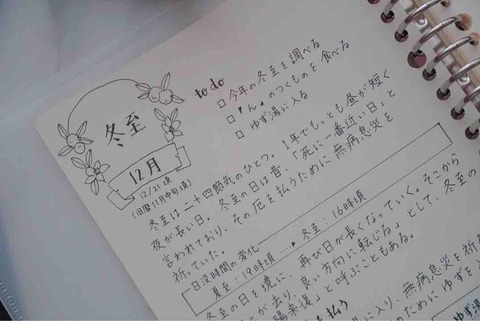 冬至
12月
12/21頃
(旧暦11月中旬頃)
to do
□ 今年の冬至を調べる
□ 「ん」のつくものを食べる
□ ゆず湯に入る
冬至は二十四節気のひとつ。1年でもっとも昼が短く
夜が長い日。冬至の日は昔、「死に一番近い日」と
言われており、その厄を払うために無病息災を
祈っていた。
日没時間の変化
夏至、19時頃 → 冬至、16時頃
冬至の日を境に、再び日が長くなっていく。そこから
ことが去り、良い方向に転じる」として、冬至の
陽来復」と呼ぶこともある。
払う
に入り、無病息災を祈る
ために ゆずを
ゆず湯